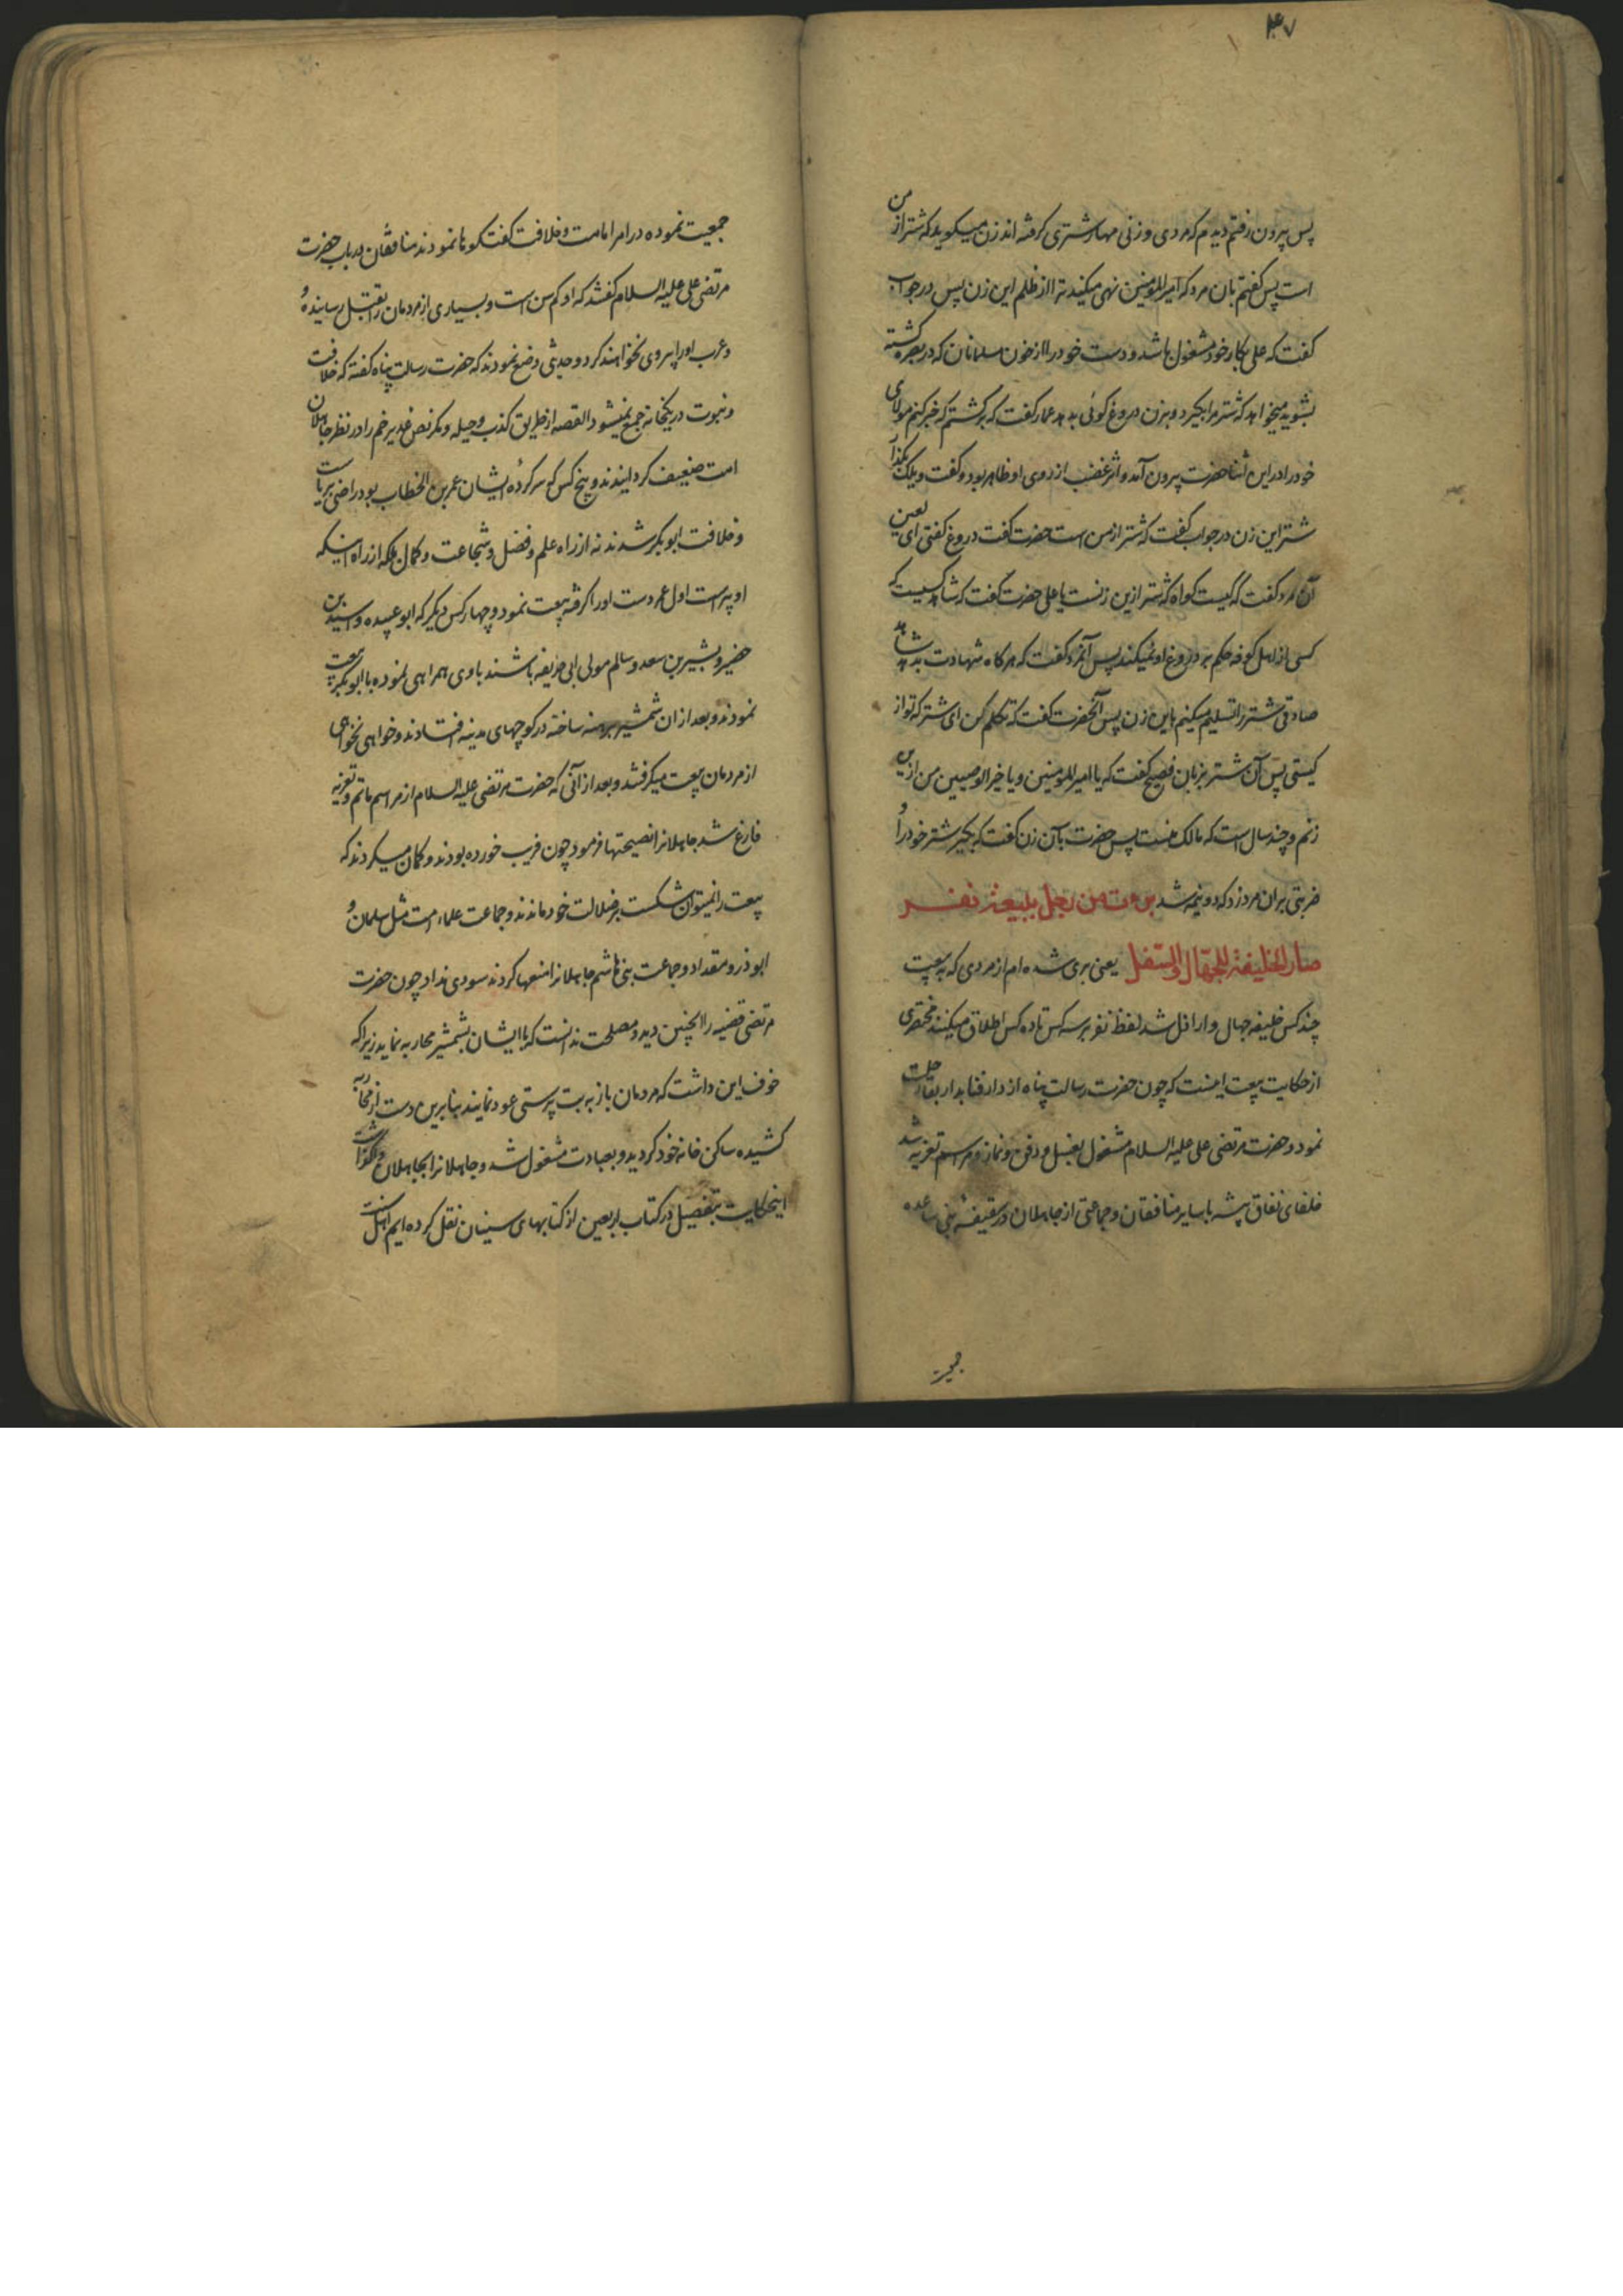 ۴۷
پس بیرون رفتم دیدم که مردی و زنی مهار شتری گرفته اند زن میگوید که شتر از من
است پس گفتم بان مرد که امیرالمومنین نهی میکند ترا از ظلم این زن پس در جواب
گفت که علی بکار خود مشغول باشد و دست خود را از خون مسلمانان که در بصره کشته
بشوید میخواهد که شتر مرا بگیرد و بزن دروغ گوئی بدهد عمار گفت که برگشتم که خبر کنم مولای
خود را در این اثنا حضرت بیرون آمد و اثر غضب از روی او ظاهر بود و گفت ویلک بگذار
شتر این زن در جواب گفت که شتر از من است حضرت گفت دروغ گفتی ای لعین
آن مرد گفت که کیست گواه که شتر ازین زنست یا علی حضرت گفت که شاهد کسیست که
کسی از اهل کوفه حکم بر دروغ او نمیکند پس آنمرد گفت که هرگاه شهادت بدهد شاهد
صادقی شتر را تسلیم میکنم باین زن پس آنحضرت گفت که تکلم کن ای شتر که تو از
کیستی پس آن شتر بزبان فصیح گفت که یا امیرالمومنین و یا خیر الوصیین من ازین
زنم و چند سال است که مالک منست پس حضرت بآن زن گفت که بگیر شتر خود را و
ضربتی بران مرد زد که دو نیمه شد برءت من رجل ببیعة نفر
صار الخلیفة للجهال والسفل یعنی بری شده ام از مردی که به بیعت
چند کس خلیفه جهال و اراذل شد لفظ نفر بر سه کس تا ده کس اطلاق میکنند مختصری
از حکایت بیعت اینست که چون حضرت رسالت پناه از دار فنا بدار بقا رحلت
نمود و حضرت مرتضی علی علیه السلام مشغول بغسل و دفن و نماز و مراسم تعزیه شد
خلفای نفاق پیشه با سایر منافقان و جماعتی از جاهلان در سقیفه بنی ساعده
جمعیت نموده در امر امامت و خلافت گفتگوها نمودند منافقان در باب حضرت
مرتضی علی علیه السلام گفتند که او کم سن است و بسیاری از مردمان را بقتل رسانیده و
عرب او را پیروی نخواهند کرد و حدیثی وضع نمودند که حضرت رسالت پناه گفته که خلافت
و نبوت در یکخانه جمع نمیشود القصه از طریق کذب و حیله و مکر نص غدیر خم را در نظر جاهلان
امت ضعیف گردانیدند و پنج کس که سرکرده ایشان عمر بن الخطاب بود راضی بریاست
و خلافت ابو بکر شدند نه از راه علم و فضل و شجاعت و کمال بلکه از راه اینکه
او پیر است اول عمر دست او را گرفته بیعت نمود و چهار کس دیگر که ابو عبیده و اسید بن
حضیر و بشیر بن سعد و سالم مولی ابی حذیفه باشند با وی همراهی نموده با ابوبکر بیعت
نمودند و بعد از ان شمشیر برهنه ساخته در کوچهای مدینه افتادند و خواهی نخواهی
از مردمان بیعت میگرفتند و بعد از آنی که حضرت مرتضی علیه السلام از مراسم ماتم و تعزیه
فارغ شد جاهلانرا نصیحتها فرمود چون فریب خورده بودند و گمان میکردند که
بیعت را نمیتوان شکست بر ضلالت خود ماندند و جماعت علماء امت مثل سلمان و
ابوذر و مقداد و جماعت بنی هاشم جاهلانرا منعها کردند سودی نداد چون حضرت
مرتضی قضیه را اینچنین دید و مصلحت ندانست که با ایشان بشمشیر محاربه نماید زیرا که
خوف این داشت که مردمان باز به بت پرستی عود نمایند بنابرین دست از محاربه
کشیده ساکن خانه خود گردید و بعبادت مشغول شد و جاهلانرا بجاهلان واگذاشت
اینحکایت بتفصیل در کتاب اربعین از کتابهای سنیان نقل کرده ایم